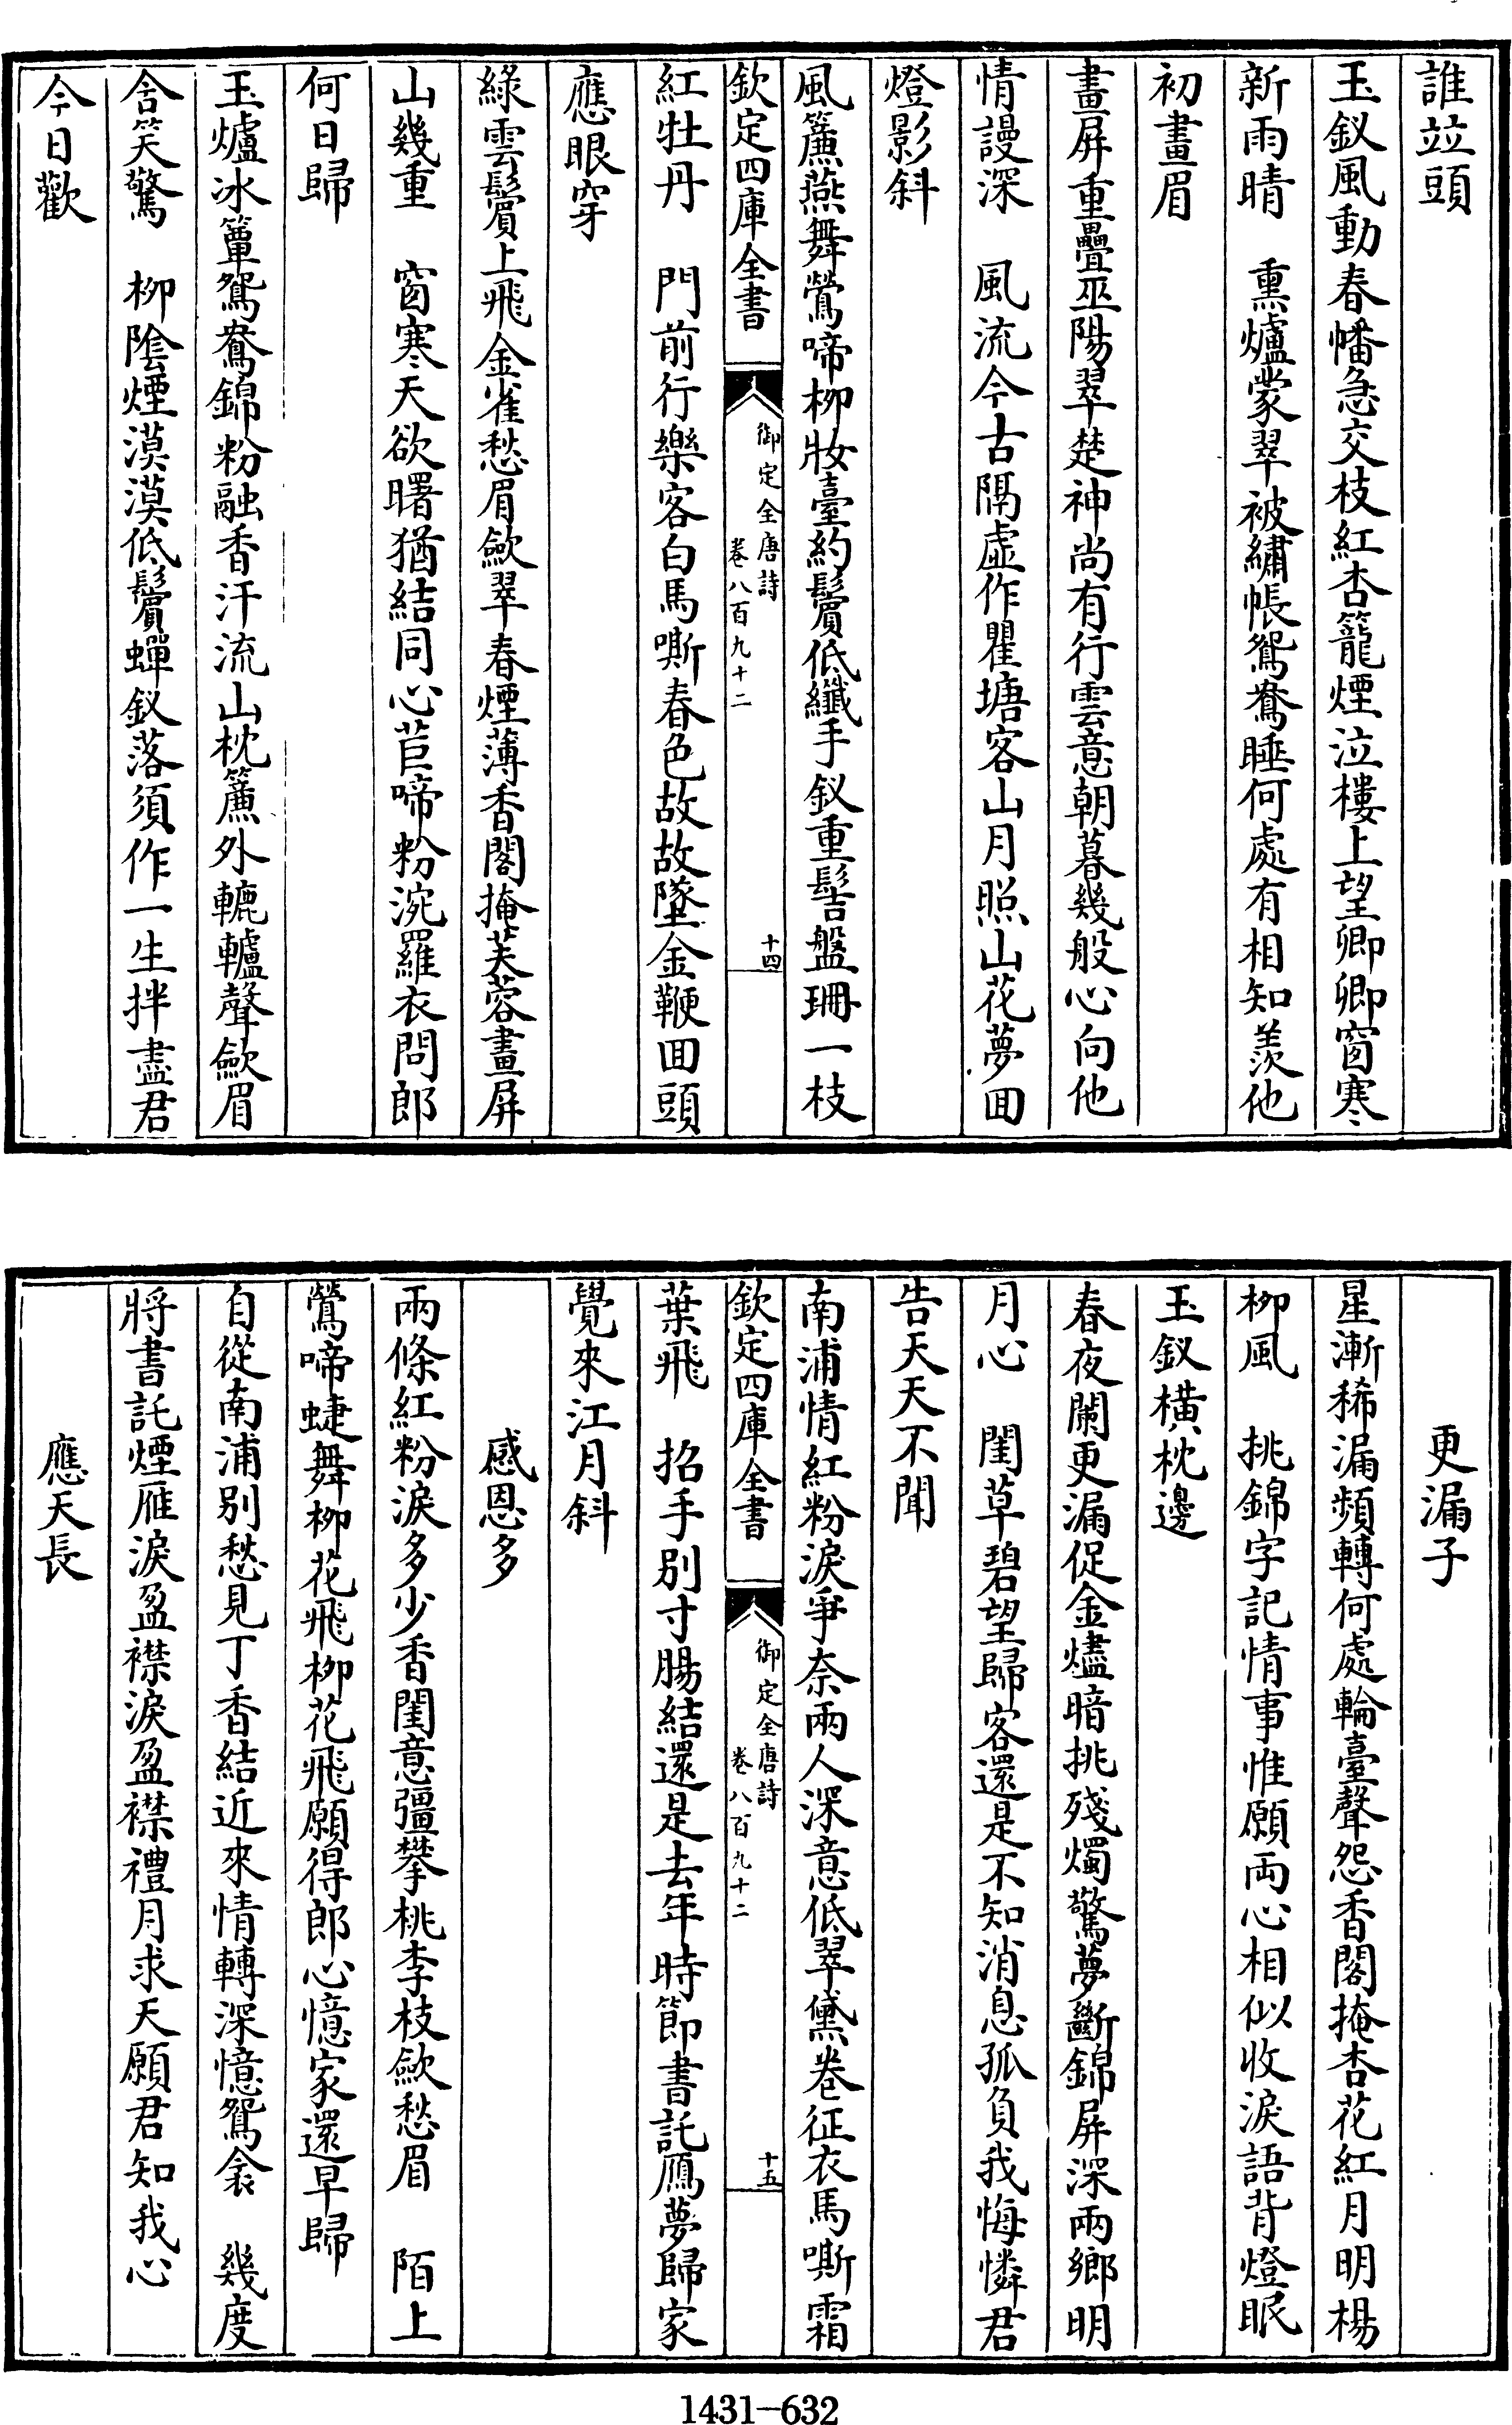 誰竝頭
玉釵風動春幡急交枝紅杏籠煙泣樓上望卿卿窗寒
新雨晴　熏爐蒙翠被繡帳鴛鴦睡何處有相知羨他
初畫眉
畫屏重疊巫陽翠楚神尚有行雲意朝暮幾般心向他
情謾深　風流今古隔虛作瞿塘客山月照山花夢囬
燈影斜
風簾燕舞鶯啼柳妝臺約鬢低纖手釵重髻盤珊一枝
欽定四庫全書
御定全唐詩
卷八百九十二
十四
紅牡丹　門前行樂客白馬嘶春色故故墜金鞭囬頭
應眼穿
綠雲鬢上飛金雀愁眉斂翠春煙薄香閣掩芙蓉畫屏
山幾重　窗寒天欲曙猶結同心苣啼粉涴羅衣問郎
何日歸
玉爐冰簟鴛鴦錦粉融香汗流山枕簾外轆轤聲斂眉
含笑驚　柳陰煙漠漠低鬢蟬釵落須作一生拌盡君
今日歡
更漏子
星漸稀漏頻轉何處輪臺聲怨香閣掩杏花紅月明楊
柳風　挑錦字記情事惟願兩心相似收淚語背燈眠
玉釵橫枕邊
春夜闌更漏促金燼暗挑殘燭驚夢斷錦屏深兩鄉明
月心　閨草碧望歸客還是不知消息孤負我悔憐君
告天天不聞
南浦情紅粉淚爭奈兩人深意低翠黛卷征衣馬嘶霜
欽定四庫全書
御定全唐詩
卷八百九十二
十五
葉飛　招手別寸腸結還是去年時節書託鴈夢歸家
覺來江月斜
感恩多
兩條紅粉淚多少香閨意彊攀桃李枝斂愁眉　陌上
鶯啼蜨舞柳花飛柳花飛願得郎心憶家還早歸
自從南浦別愁見丁香結近來情轉深憶鴛衾　幾度
將書託煙雁淚盈襟淚盈襟禮月求天願君知我心
應天長
1431—632